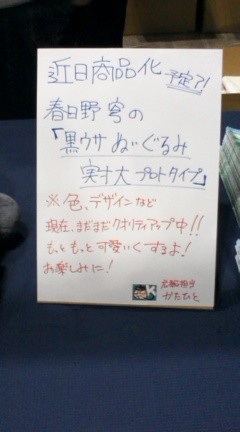 近日商品化 予定?!
春日野 穹の
「黒ウサ ぬいぐるみ
実寸大 プロトタイプ」
※色、デザインなど
現在、まだまだクオリティアップ中!!
もっともっと可愛いくするよ!
お楽しみに!
広報担当
かたひと